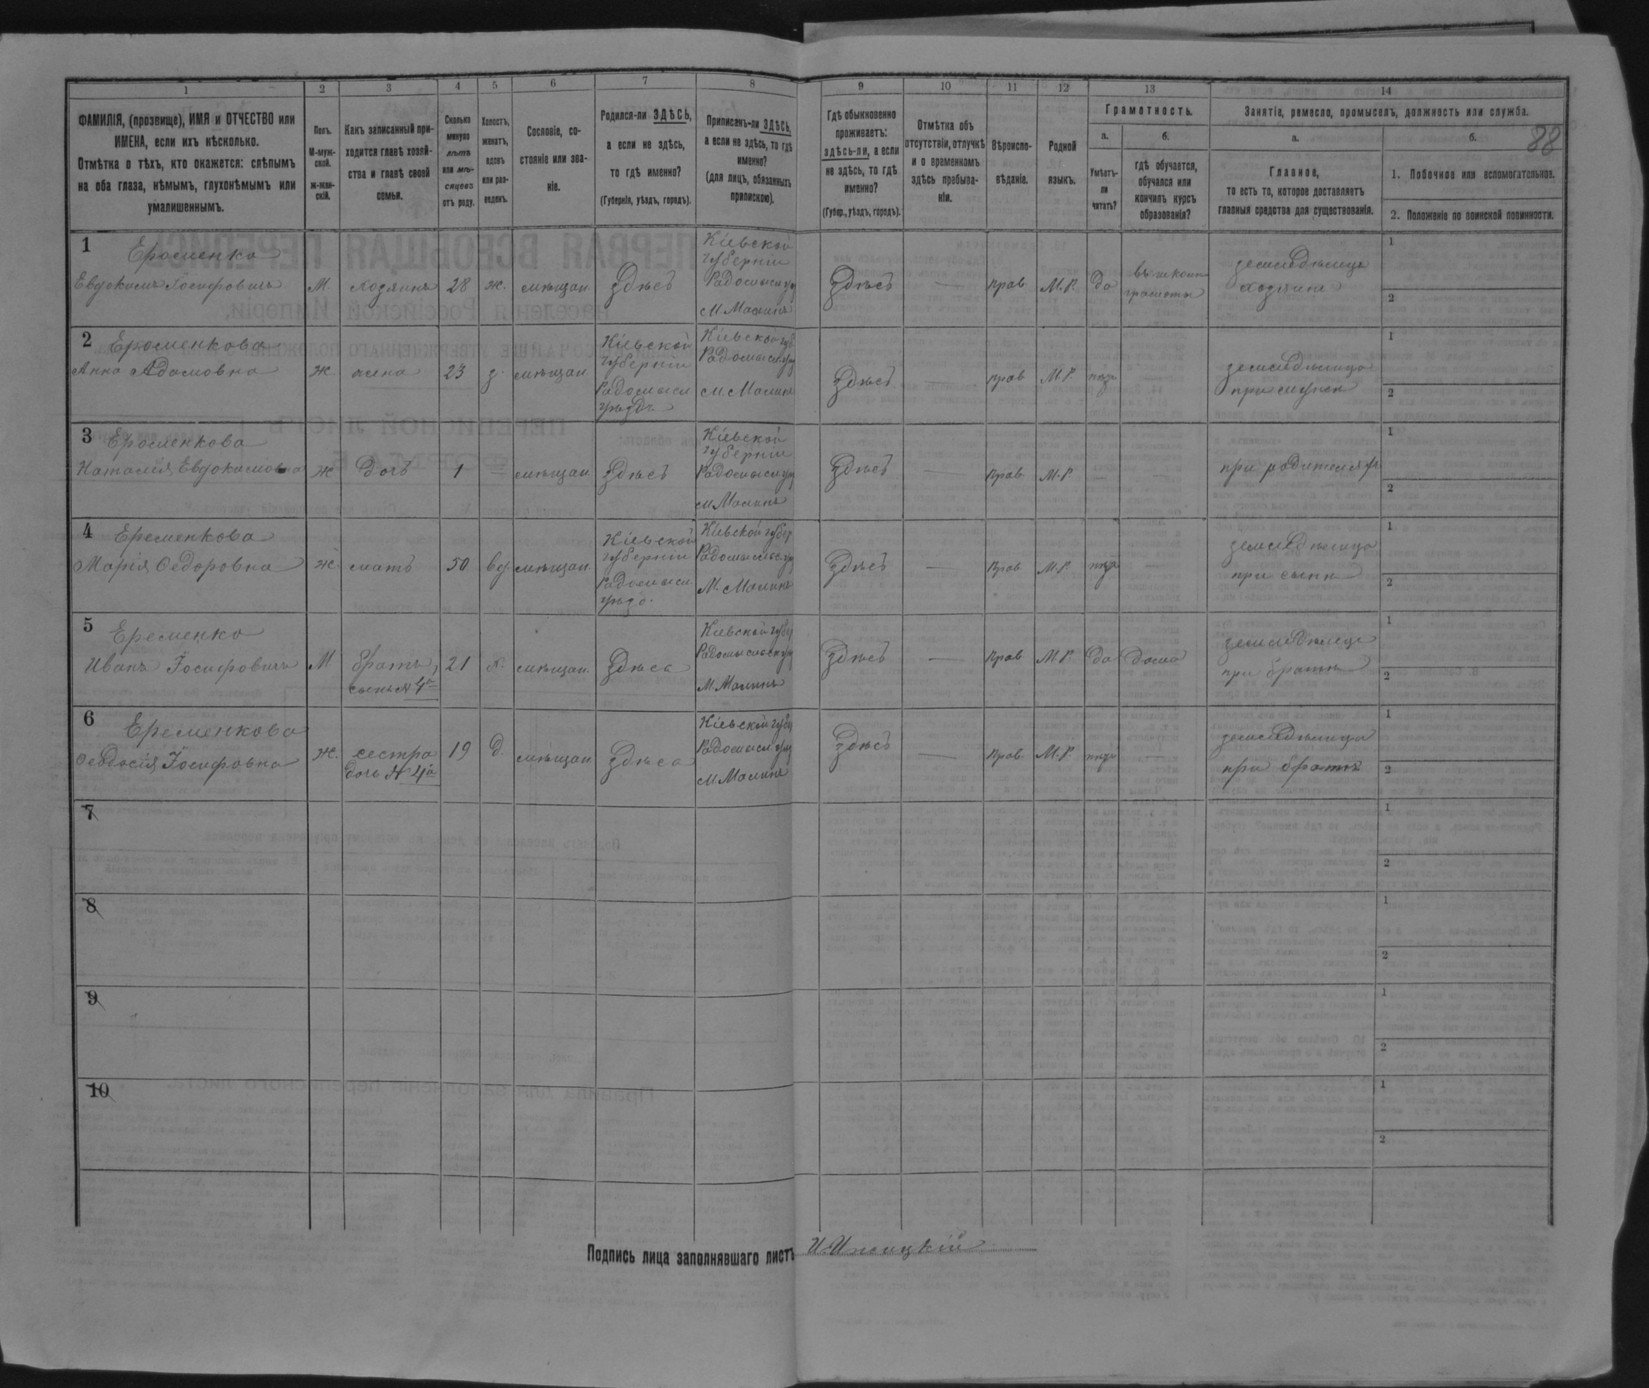 88
1
2
3
4
5
6
7
8
9
10
11
12
13
14
ФАМИЛІЯ, (прозвище), ИМЯ и ОТЧЕСТВО или
ИМЕНА, если ихъ нѣсколько.
Отмѣтка о тѣхъ, кто окажется: слѣпымъ
на оба глаза, нѣмымъ, глухонѣмымъ или
умалишеннымъ.
Полъ.
М-муж-
ской.
ж-жен-
скій.
Какъ записанный при-
ходится главѣ хозяй-
ства и главѣ своей
семьи.
Сколько
минуло
лѣтъ
или мѣ-
сяцевъ
отъ роду.
Холостъ,
женатъ,
вдовъ
или раз-
веденъ.
Сословіе, со-
стояніе или зва-
ніе.
Родился-ли ЗДѢСЬ,
а если не здѣсь,
то гдѣ именно?
(Губернія, уѣздъ, городъ).
Приписанъ-ли ЗДѢСЬ,
а если не здѣсь, то гдѣ
именно?
(для лицъ, обязанныхъ
припискою).
Гдѣ обыкновенно
проживаетъ:
здѣсь-ли, а если
не здѣсь, то гдѣ
именно?
(Губер., уѣздъ, городъ).
Отмѣтка объ
отсутствіи, отлучкѣ
и о временномъ
здѣсь пребыва-
ніи.
Вѣроиспо-
вѣданіе.
Родной
языкъ.
Грамотность.
а.
Умѣетъ-
ли
читать?
б.
гдѣ обучается,
обучался или
кончилъ курсъ
образованія?
Занятіе, ремесло, промыселъ, должность или служба.
а.
Главное,
то есть то, которое доставляетъ
главныя средства для существованія.
б.
1. Побочное или вспомогательное.
2. Положеніе по воинской повинности.
1
Ероменко
Евдокимъ Іосифовичъ
М.
хозяинъ
28
ж.
мѣщан
Здѣсь
Кіевской
губерніи
Радомысл у
м Малинъ
Здѣсь
—
прав
М.Р.
да
земледѣлецъ
хозяинъ
1
2
2
Ероменкова
Анна Адамовна
ж
жена
23
з.
мѣщан
Кіевской
губерніи
Радомысл
уѣзда
Кіевской губ
Радомысл у
м. Малинъ
Здѣсь
прав
М.Р.
земледѣлица
при мужѣ
1
2
3
Ероменкова
Наталія Евдокимовна
ж
дочь
1
—
мѣщан
Здѣсь
Кіевской
губерніи
Радомысл у
м Малинъ
Здѣсь
—
прав
М.Р
—
—
при родителяхъ
1
2
4
Еременкова
Марія Ѳедоровна
ж.
мать
50
вд.
мѣщан.
Кіевской
губерніи
Радомысл
уѣзд.
Кіевской губер
Радомысл у
М. Малинъ
Здѣсь
—
прав
М.Р.
—
земледѣлица
при сынѣ
1
2
5
Еременко
Иванъ Іосифовичъ
М
братъ,
сынъ № 4го
21
х.
мѣщан.
Здѣсь
Кіевской губер
Радомысл у
М. Малинъ
Здѣсь
—
прав
М.Р.
да
дома
земледѣлецъ
при братѣ
1
2
6
Еременкова
Ѳеодосія Іосифовна
ж.
сестра
дочь № 4й
19
д.
мѣщан
Здѣсь
Кіевской губер
Радомысл у
м Малинъ
Здѣсь
—
прав.
М.Р.
—
земледѣлица
при братѣ
1
2
7
1
2
8
1
2
9
1
2
10
1
2
Подпись лица заполнявшаго листъ